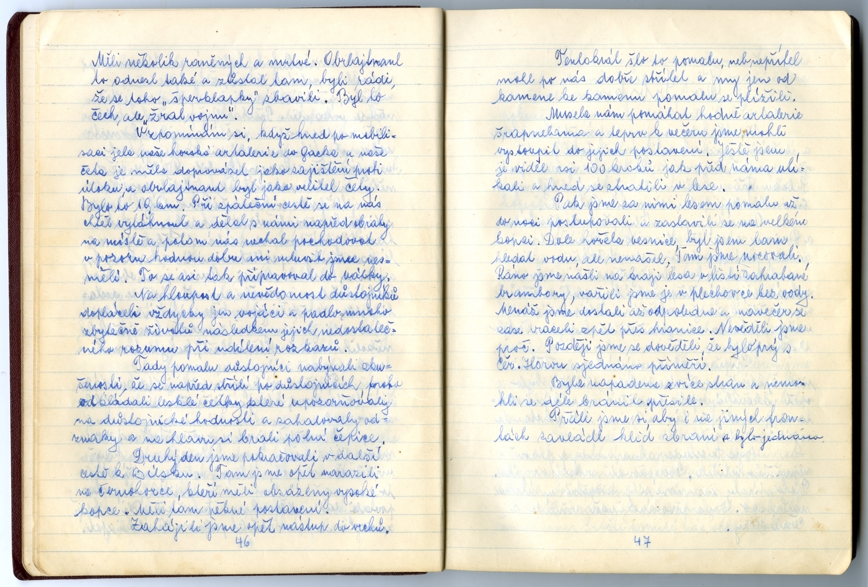 Měli několik raněných a mrtvé. Obrlajtnant
to odnesl také a zůstal tam, byli rádi,
že se toho „šperoklapky" zbavili. Byl to
čech, ale „žral vojnu".
Vzpomínám si, když hned po mobili-
saci jela naše horská artalerie do Gacka a naše
četa je měla doprovázet jako zajištění proti
útoku, a obrlajtnant byl jako velitel čety.
Bylo to 19 km. Při zpáteční cestě se na nás
chtěl vytáhnout a dělal s námi napřed obraty
na místě a potom nás nechal pochodovat
v pozoru hodnou dobu ani mluvit jsme nes-
měli. To se asi tak připravoval do války.
Na hloupost a nevědomost důstojníků
dopláceli vždycky jen vojáci a padlo mnoho
zbytečně životů následkem jejich nedostateč-
ného rozumu při udílení rozkazů.
Tady pomalu důstojníci nabývali zku-
šenosti, že se napřed střílí po důstojnících, proto
odkládali lesklé četky které upozorňovaly
na důstojnické hodnosti a zahalovaly od-
znaky a na hlavu si brali polní čepice.
Druhý den jsme pokračovali v další
cestě k Bileku. Tam jsme opět narazili
na Černohorce, kteří měli obsazeny vysoké
kopce. Měli tam pěkné postavení.
Zahájili jsme opět nástup do vrchů.
46
Tentokrát šlo to pomalu, neb nepřítel
mohl po nás dobře střílet a my jen od
kamene ke kamenu pomalu se plížili.
Musela nám pomáhat hodně artalerie
šrapnelama a teprv k večeru jsme mohli
vystoupit do jejich postavení. Ještě jsem
je viděl asi 100 kroků jak před náma utí-
kali a hned se ztratili v lese.
Pak jsme za nimi lesem pomalu až
do noci postupovali a zastavili se na velkém
kopci. Dole hořela vesnice, byl jsem tam
hledat vodu, ale nenašel. Tam jsme nocovali.
Ráno jsme našli na kraji lesa v listí zahrabané
brambory, vařili jsme je v plechovce bez vody.
Menáž jsme dostali až odpoledne a navečer se
zase vraceli zpět přes hranice. Nevěděli jsme
proč. Později jsme se dověděli, že bylo prý s
Čer. Horou sjednáno příměří.
Byla napadena z více stran a nemo-
hli se déle bránit přesile.
Přáli jsme si, aby i na jiných fron-
tách zavládl klid zbraní a bylo jednáno
47